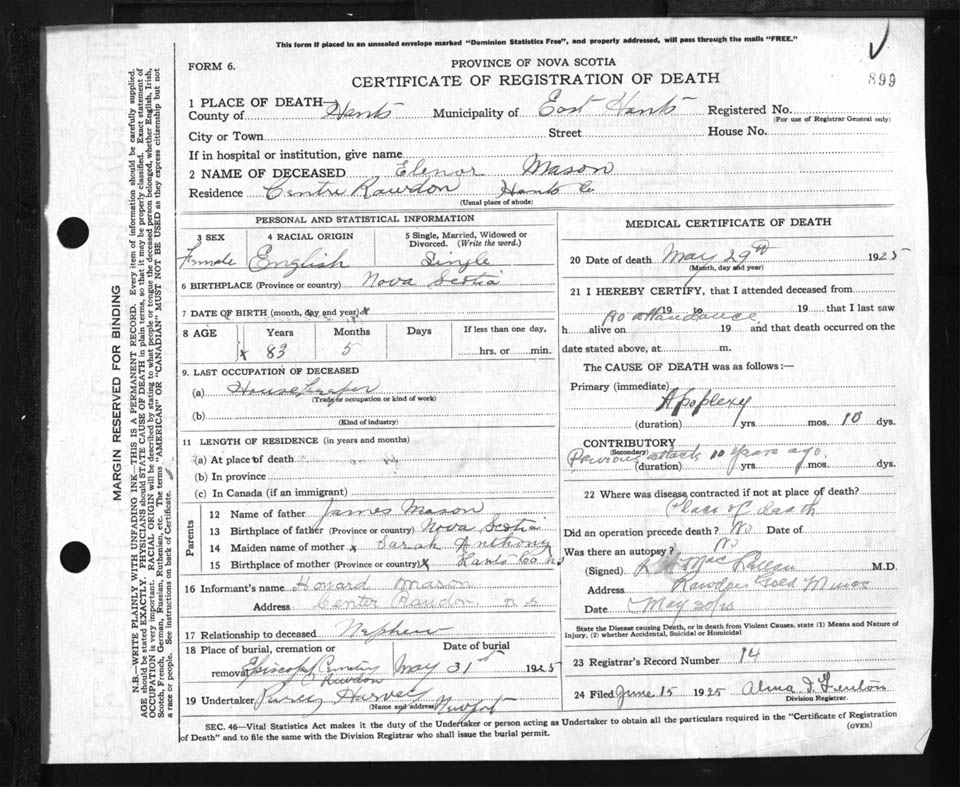 This form if placed in an unsealed envelope marked "Dominion Statistics Free", and properly addressed, will pass through the mails "FREE."
FORM 6.
PROVINCE OF NOVA SCOTIA
CERTIFICATE OF REGISTRATION OF DEATH
899
1 PLACE OF DEATH—
County of Hants Municipality of East Hants Registered No.
(For use of Registrar General only)
City or Town Street House No.
If in hospital or institution, give name
2 NAME OF DECEASED Elenor Mason
Residence Centre Rawdon Hants Co
(Usual place of abode)
PERSONAL AND STATISTICAL INFORMATION
3 SEX 4 RACIAL ORIGIN 5 Single, Married, Widowed or Divorced. (Write the word.)
Female English Single
6 BIRTHPLACE (Province or country) Nova Scotia
7 DATE OF BIRTH (month, day and year) x
8 AGE Years Months Days If less than one day,
x 83 5 hrs. or min.
9. LAST OCCUPATION OF DECEASED
(a) Housekeeper
(Trade or occupation or kind of work)
(b)
(Kind of industry)
11 LENGTH OF RESIDENCE (in years and months)
(a) At place of death
(b) In province
(c) In Canada (if an immigrant)
Parents
12 Name of father James Mason
13 Birthplace of father (Province or country) Nova Scotia
14 Maiden name of mother x Sarah Anthony
15 Birthplace of mother (Province or country) x Hants Co NS
16 Informant's name Howard Mason
Address Center Rawdon n s
17 Relationship to deceased Nephew
18 Place of burial, cremation or removal Date of burial
Episcopal Cemetery Rawdon May 31st 1925
19 Undertaker Percy Harvey Newport
(Name and address)
MEDICAL CERTIFICATE OF DEATH
20 Date of death May 29th 1925
(Month, day and year)
21 I HEREBY CERTIFY, that I attended deceased from
19 to 19 that I last saw
No attendance
h alive on 19 and that death occurred on the
date stated above, at m.
The CAUSE OF DEATH was as follows:—
Primary (immediate)
Apoplexy
(duration) yrs. mos. 10 dys.
CONTRIBUTORY
(Secondary)
Previous attack 10 years ago.
(duration) yrs. mos. dys.
22 Where was disease contracted if not at place of death?
Place of death
Did an operation precede death? No Date of
Was there an autopsy? No
(Signed) M.D.
Address Rawdon Gold Mines
Date May 30/25
State the Disease causing Death, or in death from Violent Causes, state (1) Means and Nature of Injury, (2) whether Accidental, Suicidal or Homicidal
23 Registrar's Record Number 14
24 Filed June 15 1925
Division Registrar.
SEC. 46—Vital Statistics Act makes it the duty of the Undertaker or person acting as Undertaker to obtain all the particulars required in the "Certificate of Registration
of Death" and to file the same with the Division Registrar who shall issue the burial permit.
(OVER)
MARGIN RESERVED FOR BINDING
N.B.—WRITE PLAINLY WITH UNFADING INK—THIS IS A PERMANENT RECORD. Every item of information should be carefully supplied.
AGE should be stated EXACTLY. PHYSICIANS should STATE CAUSE OF DEATH in plain terms, so that it may be properly classified. Exact statement of
OCCUPATION is very important. RACIAL ORIGIN will be described by stating to what people or tongue the deceased person belonged, whether English, Irish,
Scotch, French, German, Russian, Ruthenian, etc. The terms "AMERICAN" OR "CANADIAN" MUST NOT BE USED as they express citizenship but not
a race or people. See instructions on back of Certificate.